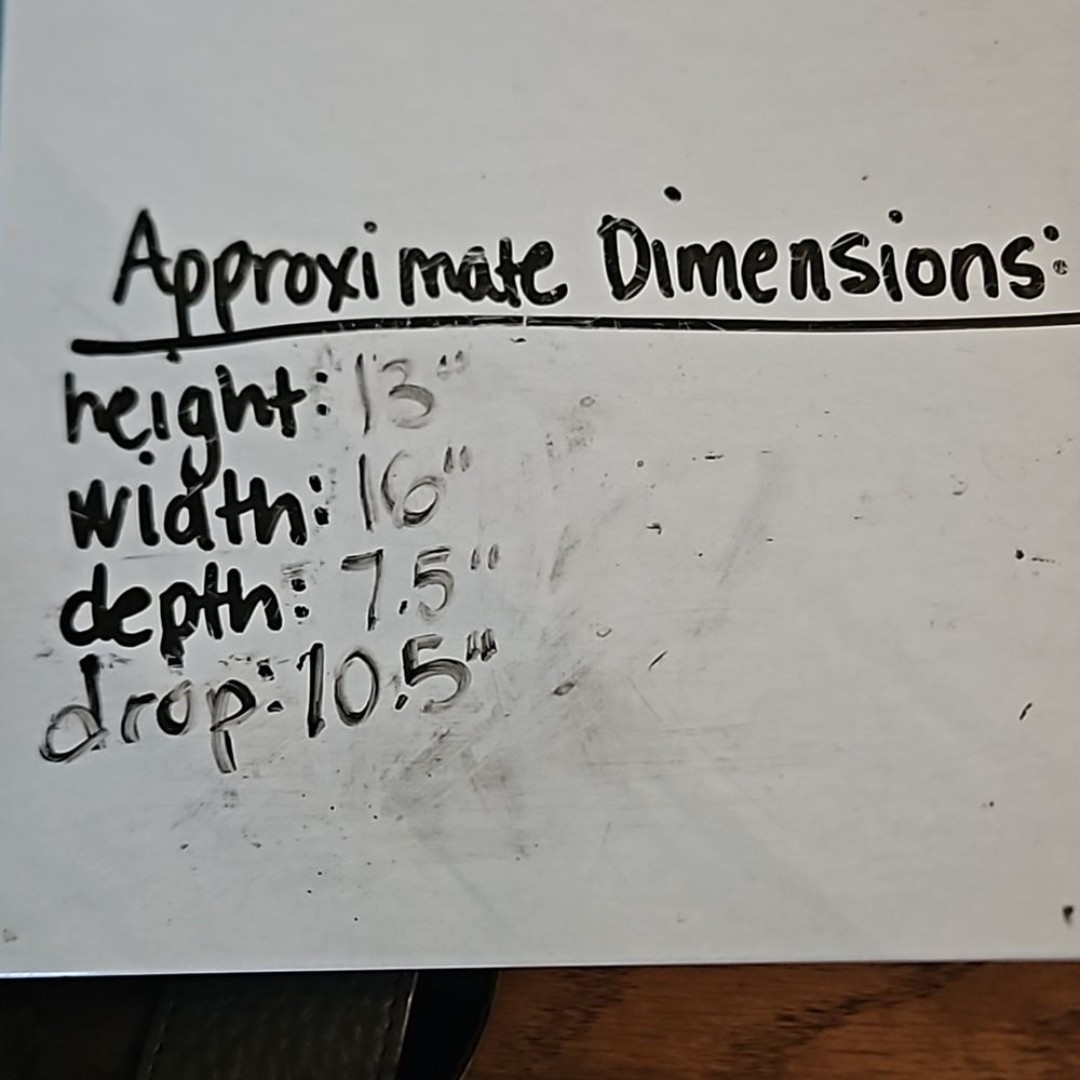 Approximate Dimensions:
height: 13"
width: 16"
depth: 7.5"
drop: 10.5"